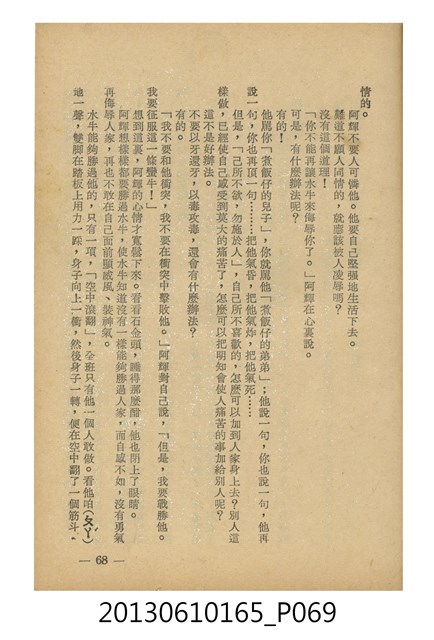 情的。
阿輝不要人可憐他。他要自己堅强地生活下去。
難道不願人同情的，就應該被人凌辱嗎？
沒有這個道理！
「你不能再讓水牛來侮辱你了。」阿輝在心裏說。
可是，有什麼辦法呢？
有的！
他罵你「煮飯仔的兒子」，你就罵他「煮飯仔的弟弟」；他說一句，你也說一句，他再
說一句，你也再頂一句………把他氣昏，把他氣炸，把他氣死……
但是，「己所不欲，勿施於人」，自己所不喜歡的，怎麼可以加到人家身上去？別人這
樣做，已經使自己感受到莫大的痛苦了，怎麼可以把明知會使人痛苦的事加給別人呢？
這不是好辦法。
不要以牙還牙，以毒攻毒，還會有什麼辦法？
有的。
「我不要和他衝突，我不要在衝突中擊敗他。」阿輝對自己說，「但是，我要戰勝他。
我要征服這一條蠻牛！」
想到這裏，阿輝的心情才寬鬆下來。看看石金頭，睡得那麼酣，他也閉上了眼睛。
阿輝想樣樣都要勝過水牛，使水牛知道沒有一樣能夠勝過人家，而自感不如，沒有勇氣
再侮辱人家，再也不敢在自己面前顯威風、裝神氣。
水牛能夠勝過他的，只有一項，「空中滾翻」，全班只有他一個人敢做。看他咱（ㄆㄚ）
地一聲，雙脚在踏板上用力一踩，身子向上一衝，然後身子一轉，便在空中翻了一個筋斗，
— 68 —
20130610165_P069